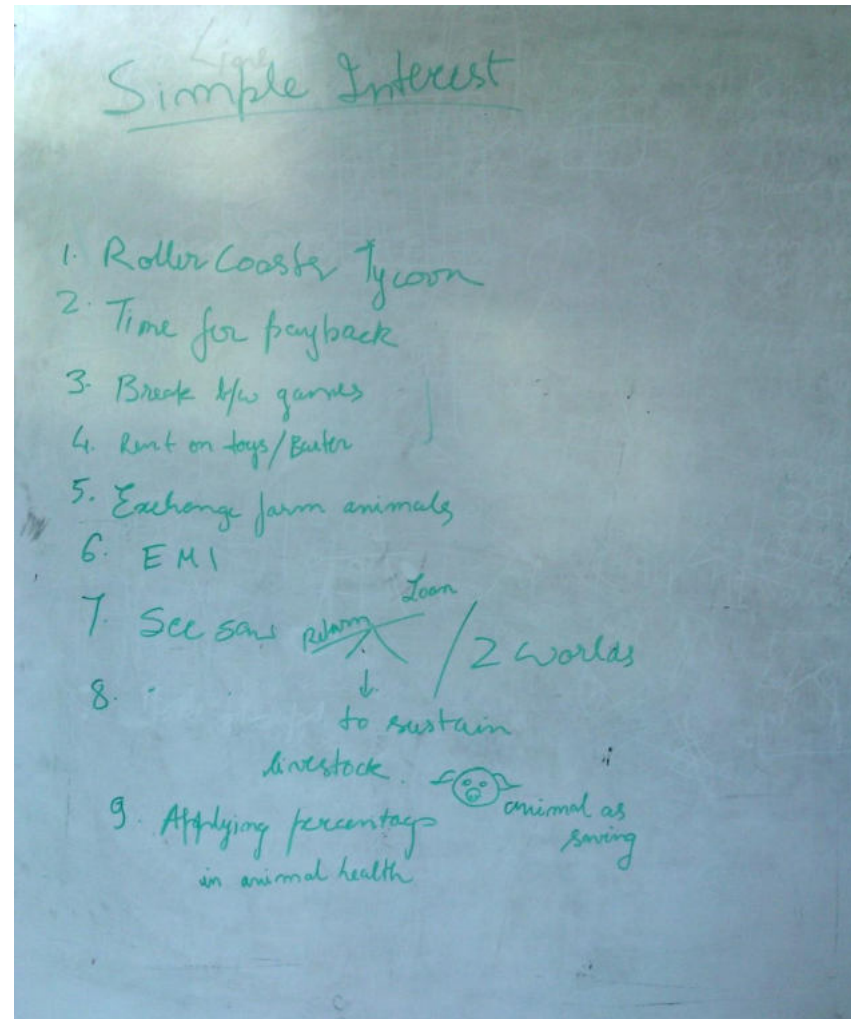 Simple Interest
1. Roller Coaster Tycoon
2. Time for payback
3. Break b/w games
4. Rent on toys/Barter
5. Exchange farm animals
6. EMI
7. See saw Return Loan / 2 worlds
8.
to sustain
livestock.
animal as
saving
9. Applying percentage
in animal health